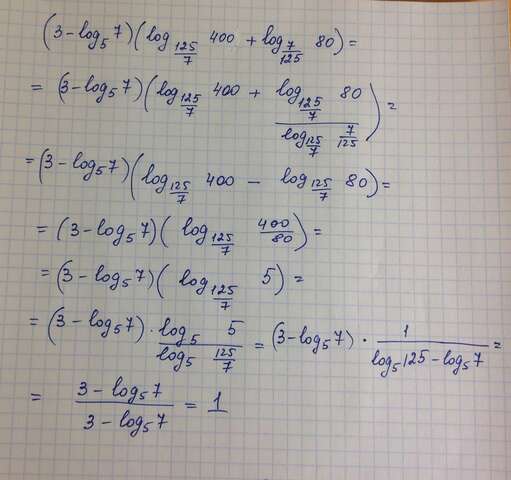 (3 - log₅ 7)(log_{125/7} 400 + log_{7/125} 80) =
= (3 - log₅ 7)(log_{125/7} 400 + \frac{log_{125/7} 80}{log_{125/7} \frac{7}{125}}) =
= (3 - log₅ 7)(log_{125/7} 400 - log_{125/7} 80) =
= (3 - log₅ 7)(log_{125/7} \frac{400}{80}) =
= (3 - log₅ 7)(log_{125/7} 5) =
= (3 - log₅ 7) · \frac{log₅ 5}{log₅ \frac{125}{7}} = (3 - log₅ 7) · \frac{1}{log₅ 125 - log₅ 7} =
= \frac{3 - log₅ 7}{3 - log₅ 7} = 1